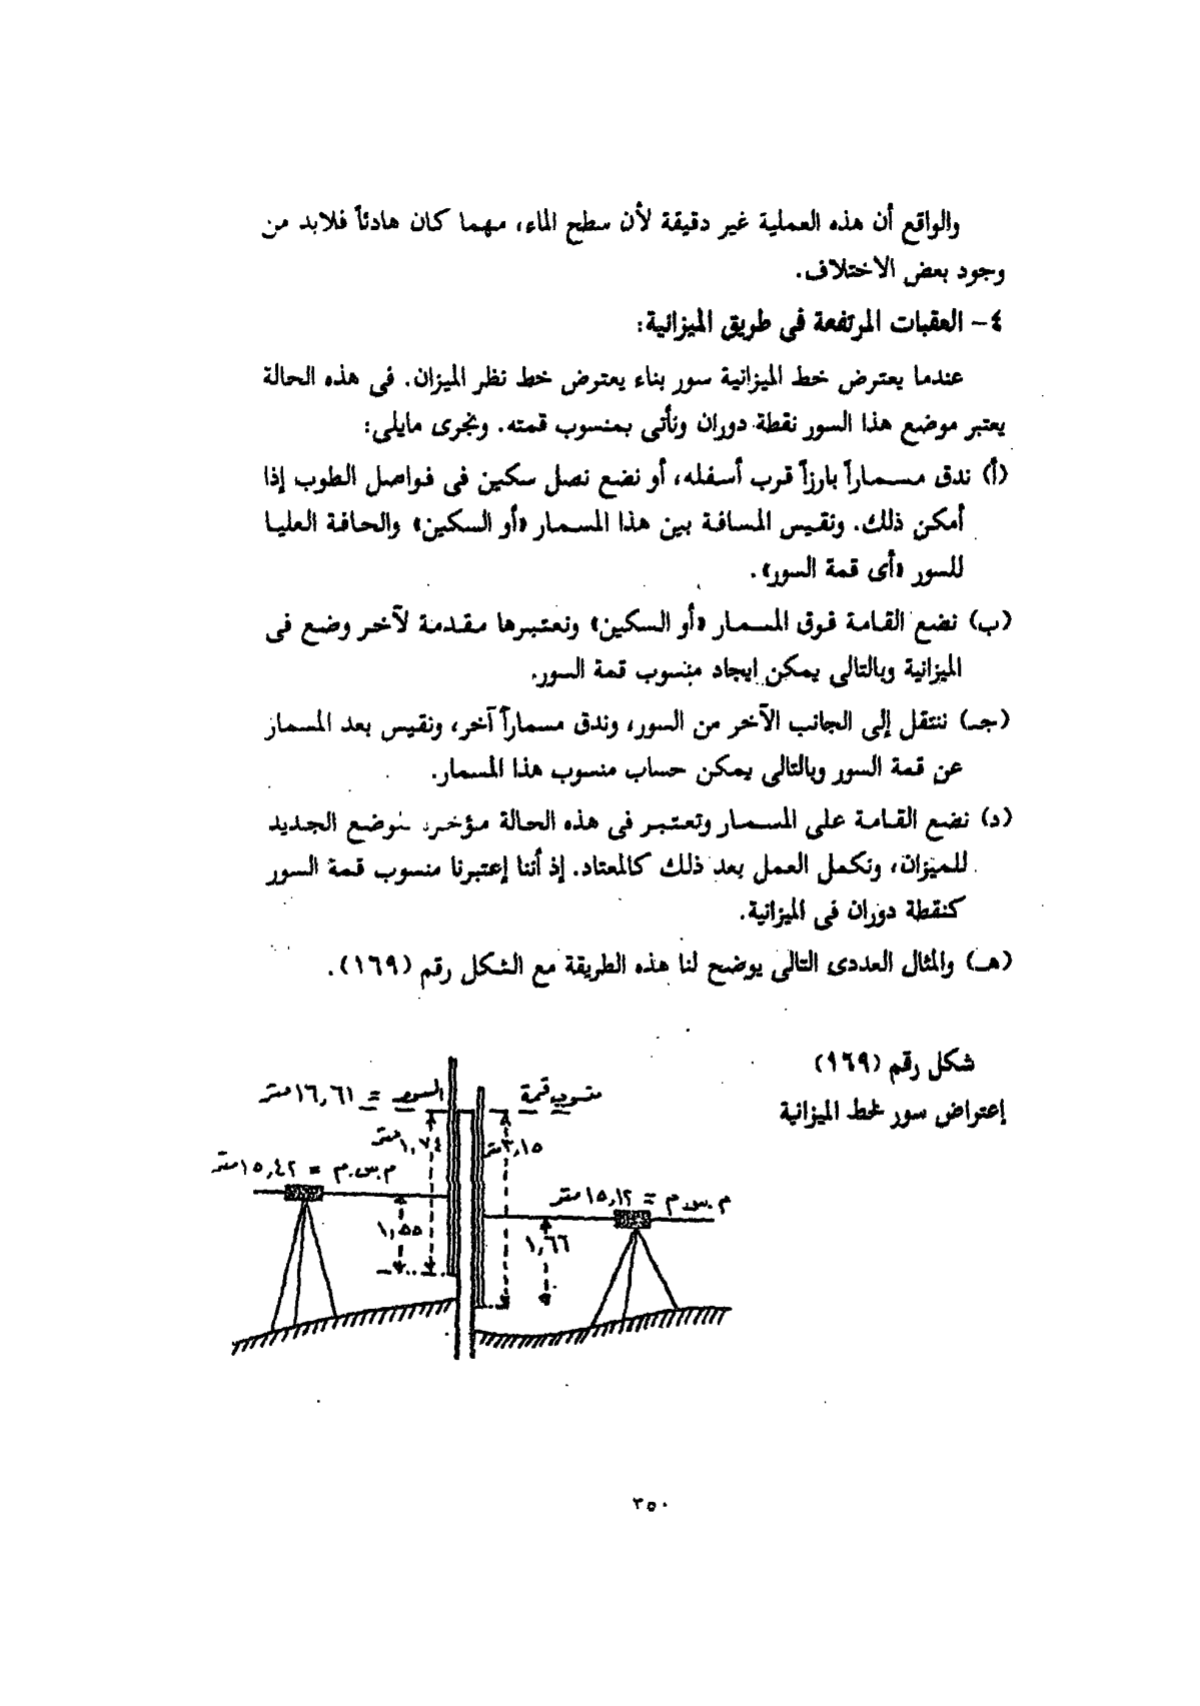 والواقع أن هذه العملية غير دقيقة لأن سطح الماء، مهما كان هادئاً فلابد من
وجود بعض الاختلاف.
٤- العقبات المرتفعة فى طريق الميزانية:
عندما يعترض خط الميزانية سور بناء يعترض خط نظر الميزان. فى هذه الحالة
يعتبر موضع هذا السور نقطة دوران ونأتى بمنسوب قمته. ونجرى مايلى:
(أ) ندق مسماراً بارزاً قرب أسفله، أو نضع نصل سكين فى فواصل الطوب إذا
أمكن ذلك. ونقيس المسافة بين هذا المسمار «أو السكين» والحافة العليا
للسور «أى قمة السور».
(ب) نضع القامة فوق المسمار «أو السكين» ونعتبرها مقدمة لآخر وضع فى
الميزانية وبالتالى يمكن ايجاد منسوب قمة السور.
(جـ) ننتقل إلى الجانب الآخر من السور، وندق مسماراً آخر، ونقيس بعد المسمار
عن قمة السور وبالتالى يمكن حساب منسوب هذا المسمار.
(د) نضع القامة على المسمار وتعتبر فى هذه الحالة الجديد
للميزان، ونكمل العمل بعد ذلك كالمعتاد. إذ أننا إعتبرنا منسوب قمة السور
كنقطة دوران فى الميزانية.
(هـ) والمثال العددى التالى يوضح لنا هذه الطريقة مع الشكل رقم (١٦٩).
شكل رقم (١٦٩)
إعتراض سور لخط الميزانية
منسوب قمة السور = ١٦,٦١ متر
١,٧٤ متر
٣,١٥ متر
م.س.م = ١٥,٤٢ متر
م.س.م = ١٥,١٢ متر
١,٥٥
١,٦٦
٣٥٠